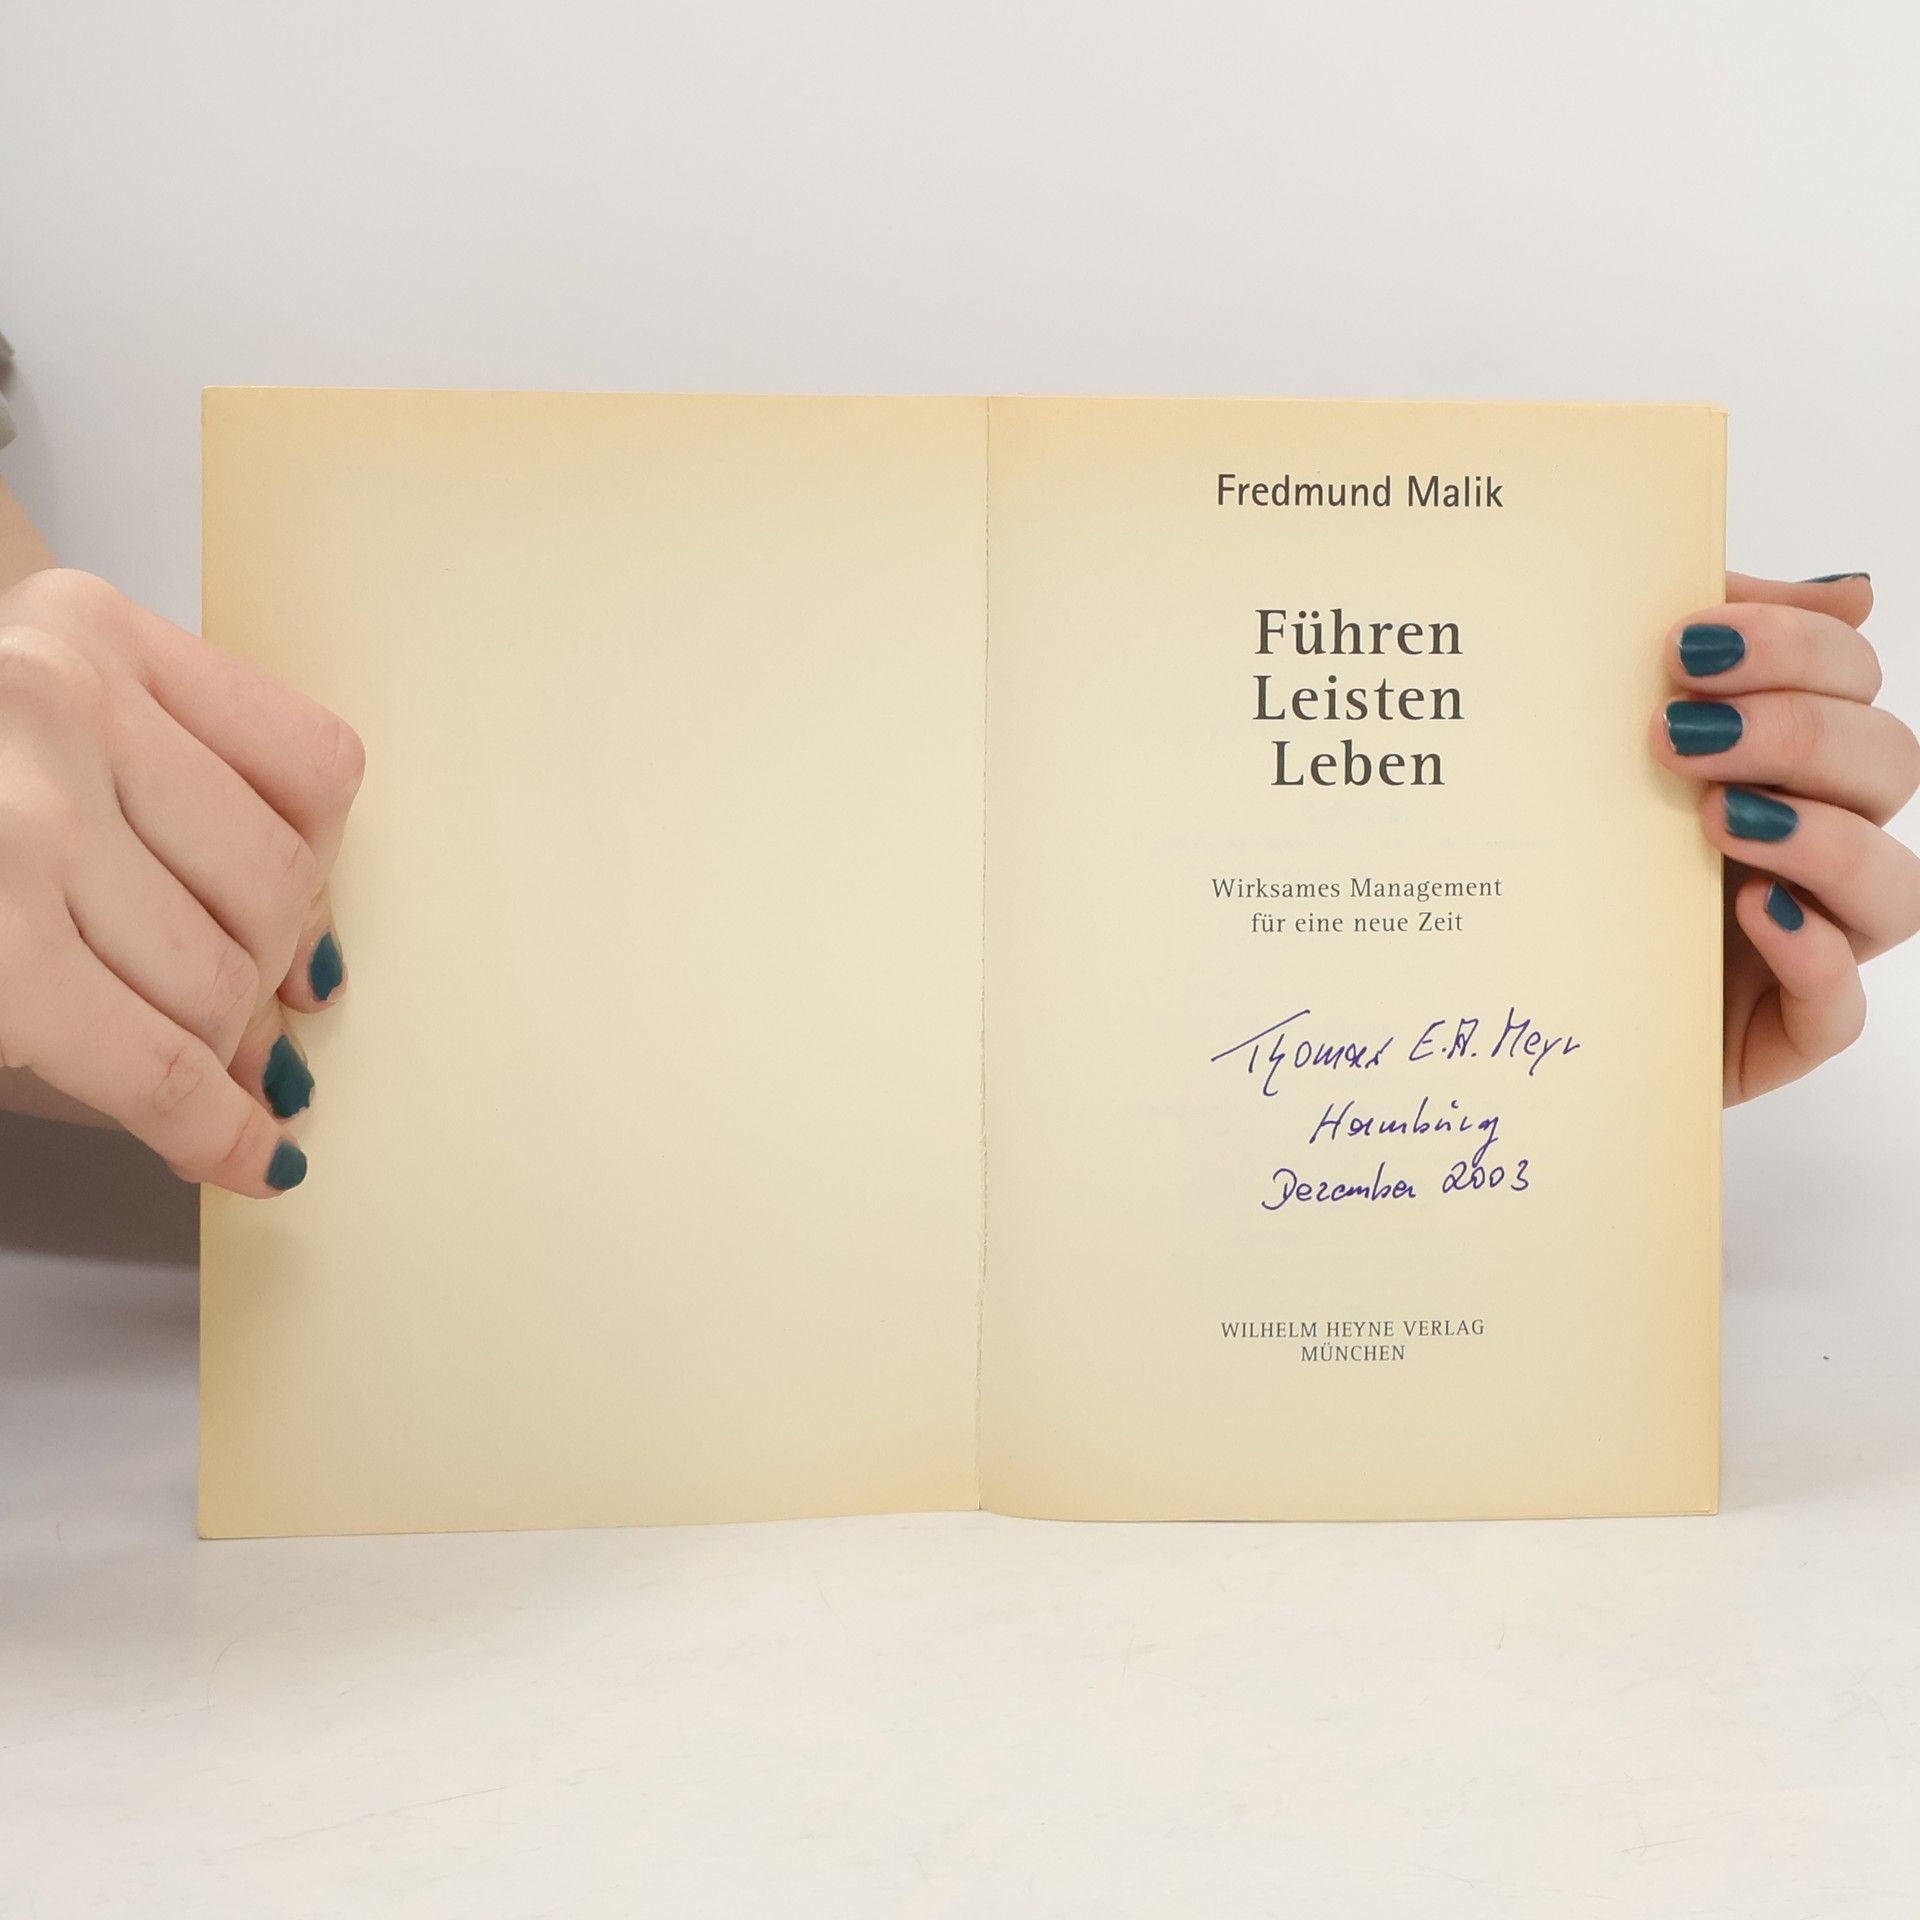 Fredmund Malik
Führen
Leisten
Leben
Wirksames Management
für eine neue Zeit
Thomas E.A. Meyr
Hamburg
Dezember 2003
WILHELM HEYNE VERLAG
MÜNCHEN